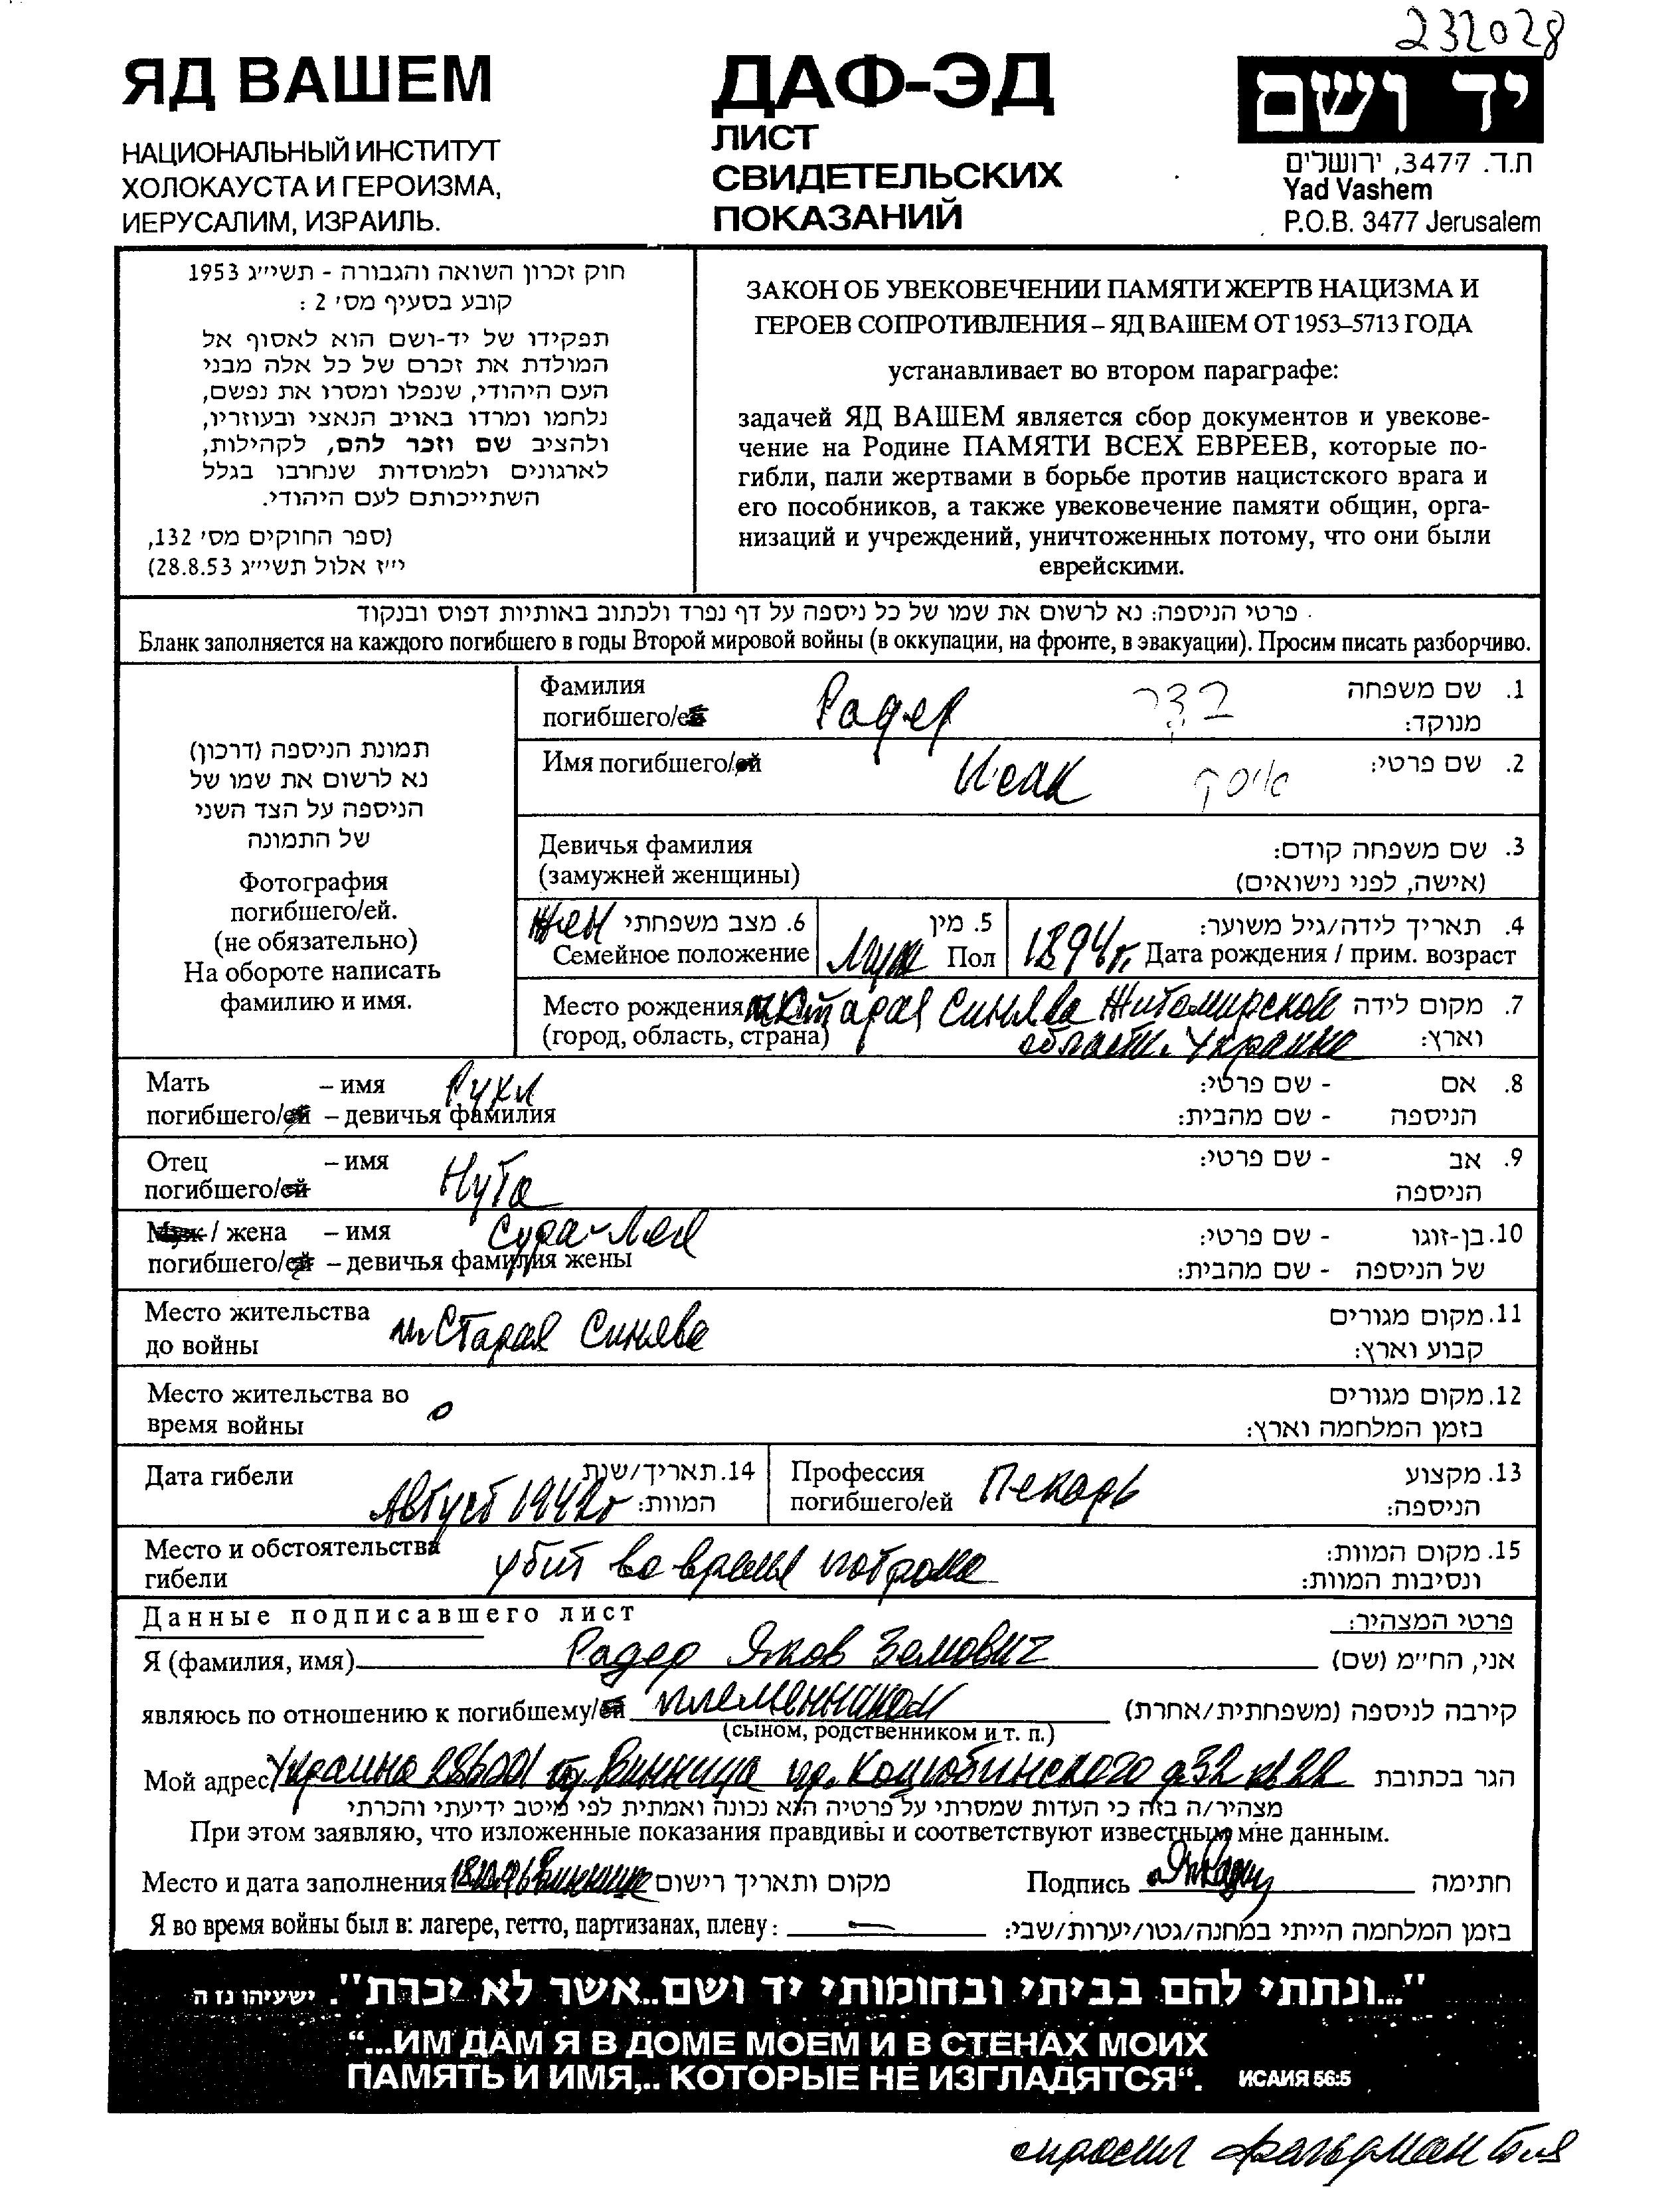 232028
ЯД ВАШЕМ
НАЦИОНАЛЬНЫЙ ИНСТИТУТ
ХОЛОКАУСТА И ГЕРОИЗМА,
ИЕРУСАЛИМ, ИЗРАИЛЬ.
ДАФ-ЭД
ЛИСТ
СВИДЕТЕЛЬСКИХ
ПОКАЗАНИЙ
יד ושם
ת.ד. 3477, ירושלים
Yad Vashem
P.O.B. 3477 Jerusalem
חוק זכרון השואה והגבורה - תשי״ג 1953
קובע בסעיף מס׳ 2 :
תפקידו של יד-ושם הוא לאסוף אל
המולדת את זכרם של כל אלה מבני
העם היהודי, שנפלו ומסרו את נפשם,
נלחמו ומרדו באויב הנאצי ובעוזריו,
ולהציב שם וזכר להם, לקהילות,
לארגונים ולמוסדות שנחרבו בגלל
השתייכותם לעם היהודי.
(ספר החוקים מס׳ 132,
י״ז אלול תשי״ג 28.8.53)
ЗАКОН ОБ УВЕКОВЕЧЕНИИ ПАМЯТИ ЖЕРТВ НАЦИЗМА И
ГЕРОЕВ СОПРОТИВЛЕНИЯ – ЯД ВАШЕМ ОТ 1953–5713 ГОДА
устанавливает во втором параграфе:
задачей ЯД ВАШЕМ является сбор документов и увекове-
чение на Родине ПАМЯТИ ВСЕХ ЕВРЕЕВ, которые по-
гибли, пали жертвами в борьбе против нацистского врага и
его пособников, а также увековечение памяти общин, орга-
низаций и учреждений, уничтоженных потому, что они были
еврейскими.
פרטי הניספה: נא לרשום את שמו של כל ניספה על דף נפרד ולכתוב באותיות דפוס ובנקוד
Бланк заполняется на каждого погибшего в годы Второй мировой войны (в оккупации, на фронте, в эвакуации). Просим писать разборчиво.
תמונת הניספה (דרכון)
נא לרשום את שמו של
הניספה על הצד השני
של התמונה
Фотография
погибшего/ей.
(не обязательно)
На обороте написать
фамилию и имя.
Фамилия 1. שם משפחה
погибшего/ей Радер מנוקד:
Имя погибшего/ей Исак איסק 2. שם פרטי:
Девичья фамилия 3. שם משפחה קודם:
(замужней женщины) (אישה, לפני נישואים)
жен 6. מצב משפחתי 5. מין 4. תאריך לידה/גיל משוער:
Семейное положение Муж Пол 1894г. Дата рождения / прим. возраст
Место рождения Старая Синява Житомирской 7. מקום לידה
(город, область, страна) области. Украина וארץ:
Мать – имя Рухл 8. אם - שם פרטי:
погибшего/ей – девичья фамилия הניספה - שם מהבית:
Отец – имя Нута 9. אב - שם פרטי:
погибшего/ей הניספה
Муж / жена – имя Сура-Лея 10. בן-זוגו - שם פרטי:
погибшего/ей – девичья фамилия жены של הניספה - שם מהבית:
Место жительства м. Старая Синява 11. מקום מגורים
до войны קבוע וארץ:
Место жительства во 12. מקום מגורים
время войны בזמן המלחמה וארץ:
Дата гибели Август 1942г 14. תאריך/שנת המוות:
Профессия 13. מקצוע
погибшего/ей Пекарь הניספה:
Место и обстоятельства 15. מקום המוות:
гибели убит во время погрома ונסיבות המוות:
Данные подписавшего лист פרטי המצהיר:
Я (фамилия, имя) Радер Яков Земович אני, הח״מ (שם)
являюсь по отношению к погибшему/ей племянником קירבה לניספה (משפחתית/אחרת)
(сыном, родственником и т. п.)
Мой адрес Украина 286001 г. Винница пр. Коцюбинского д32 кв22 הגר בכתובת
מצהיר/ה בזה כי העדות שמסרתי על פרטיה היא נכונה ואמתית לפי מיטב ידיעתי והכרתי
При этом заявляю, что изложенные показания правдивы и соответствуют известным мне данным.
Место и дата заполнения Винница מקום ותאריך רישום Подпись חתימה
Я во время войны был в: лагере, гетто, партизанах, плену: — בזמן המלחמה הייתי במחנה/גטו/יערות/שבי:
"...ונתתי להם בביתי ובחומותי יד ושם..אשר לא יכרת". ישעיהו נז ה
“...ИМ ДАМ Я В ДОМЕ МОЕМ И В СТЕНАХ МОИХ
ПАМЯТЬ И ИМЯ,.. КОТОРЫЕ НЕ ИЗГЛАДЯТСЯ“. ИСАИЯ 56:5